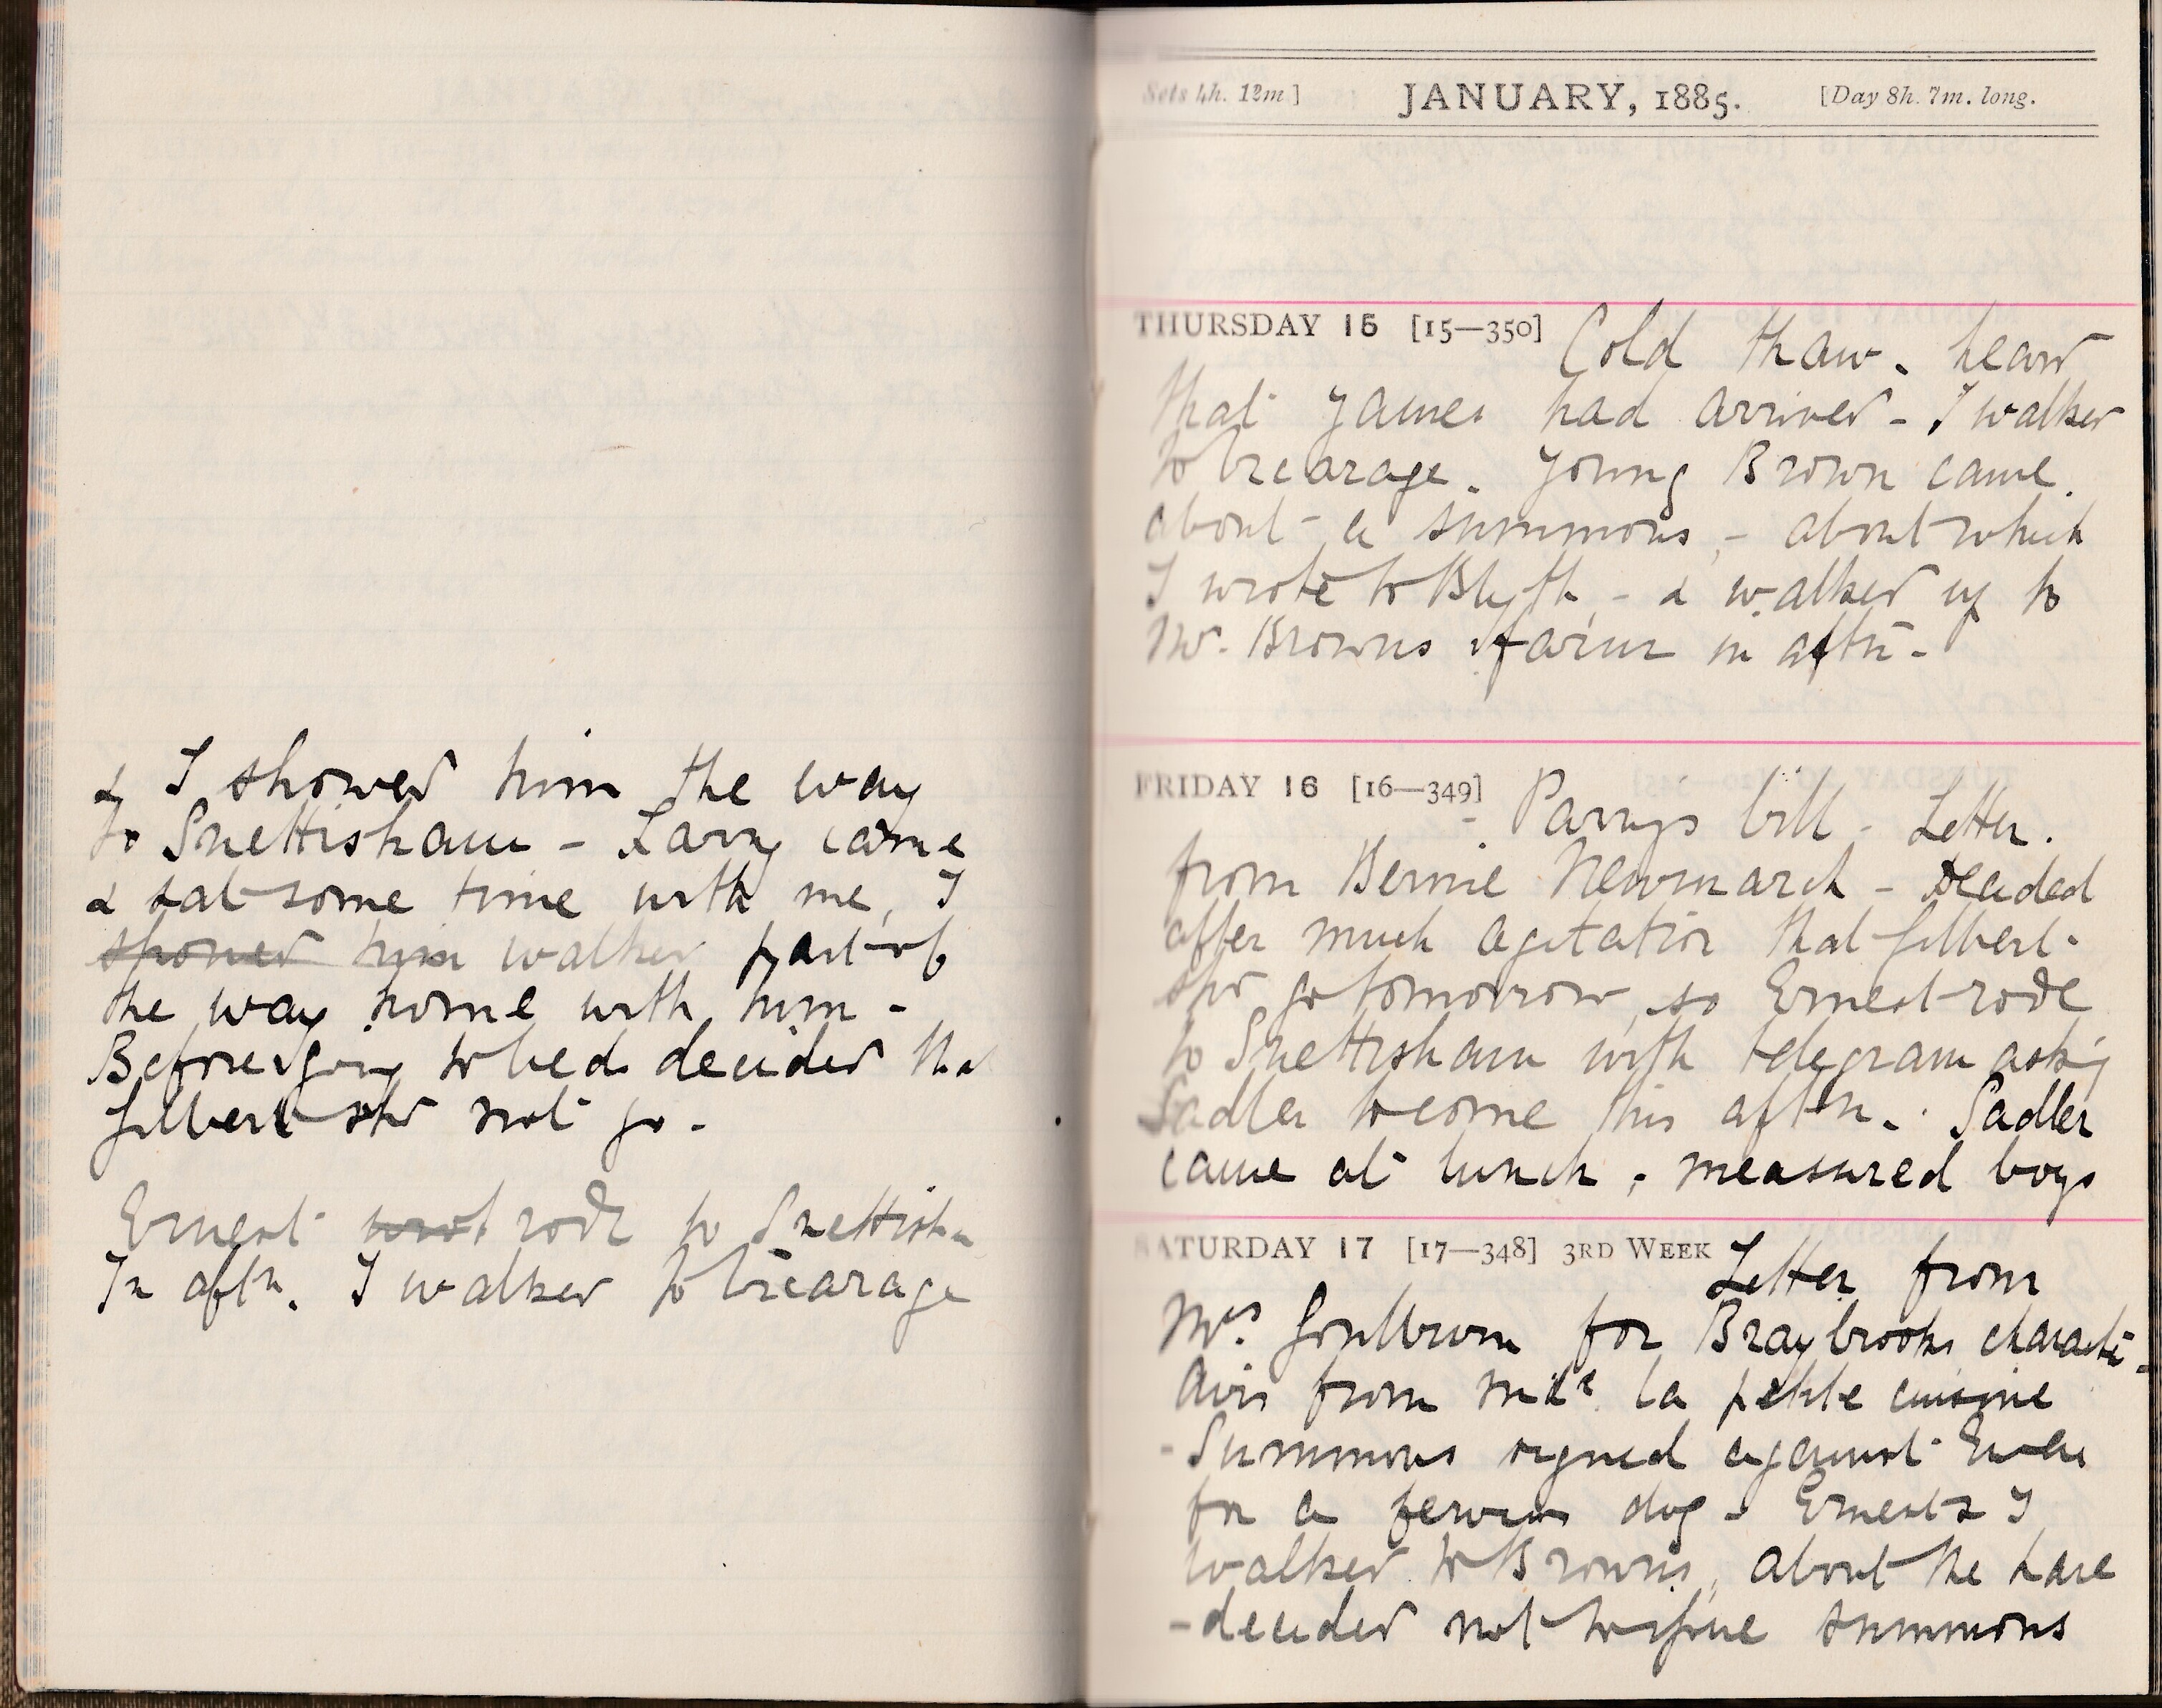 & I showed him the way
to Snettisham - Larry came
& sat some time with me, I
showed him walked part of
the way home with him -
Before going to bed decided tha
Gilbert shd not go -
Ernest rode to Snettisha
In aftn. I walked to Vicarage
Sets 4h. 12m]
JANUARY, 1885.
[Day 8h. 7m. long.
THURSDAY 15 [15—350] Cold thaw. heard
that James had arrived - I walked
to Vicarage. Young Brown came
about a summons, - about which
I wrote to Blyth, - & walked up to
Mr. Browns farm in aftn -
FRIDAY 16 [16—349] - Parrys bill - Letter
from Bernie Newmarch - Decided
after much agitation that Gilbert
shd go tomorrow, so Ernest rode
to Snettisham with telegram askg
Sadler to come this aftn. Sadler
came at lunch, measured boys
SATURDAY 17 [17—348] 3RD WEEK Letter from
Mrs. Goulburn for Braybrooks character -
Avis from Mlle. la petite cuisine
- Summons signed against
for a dog - Ernest & I
walked to Browns, about the hare
- decided not to issue summons